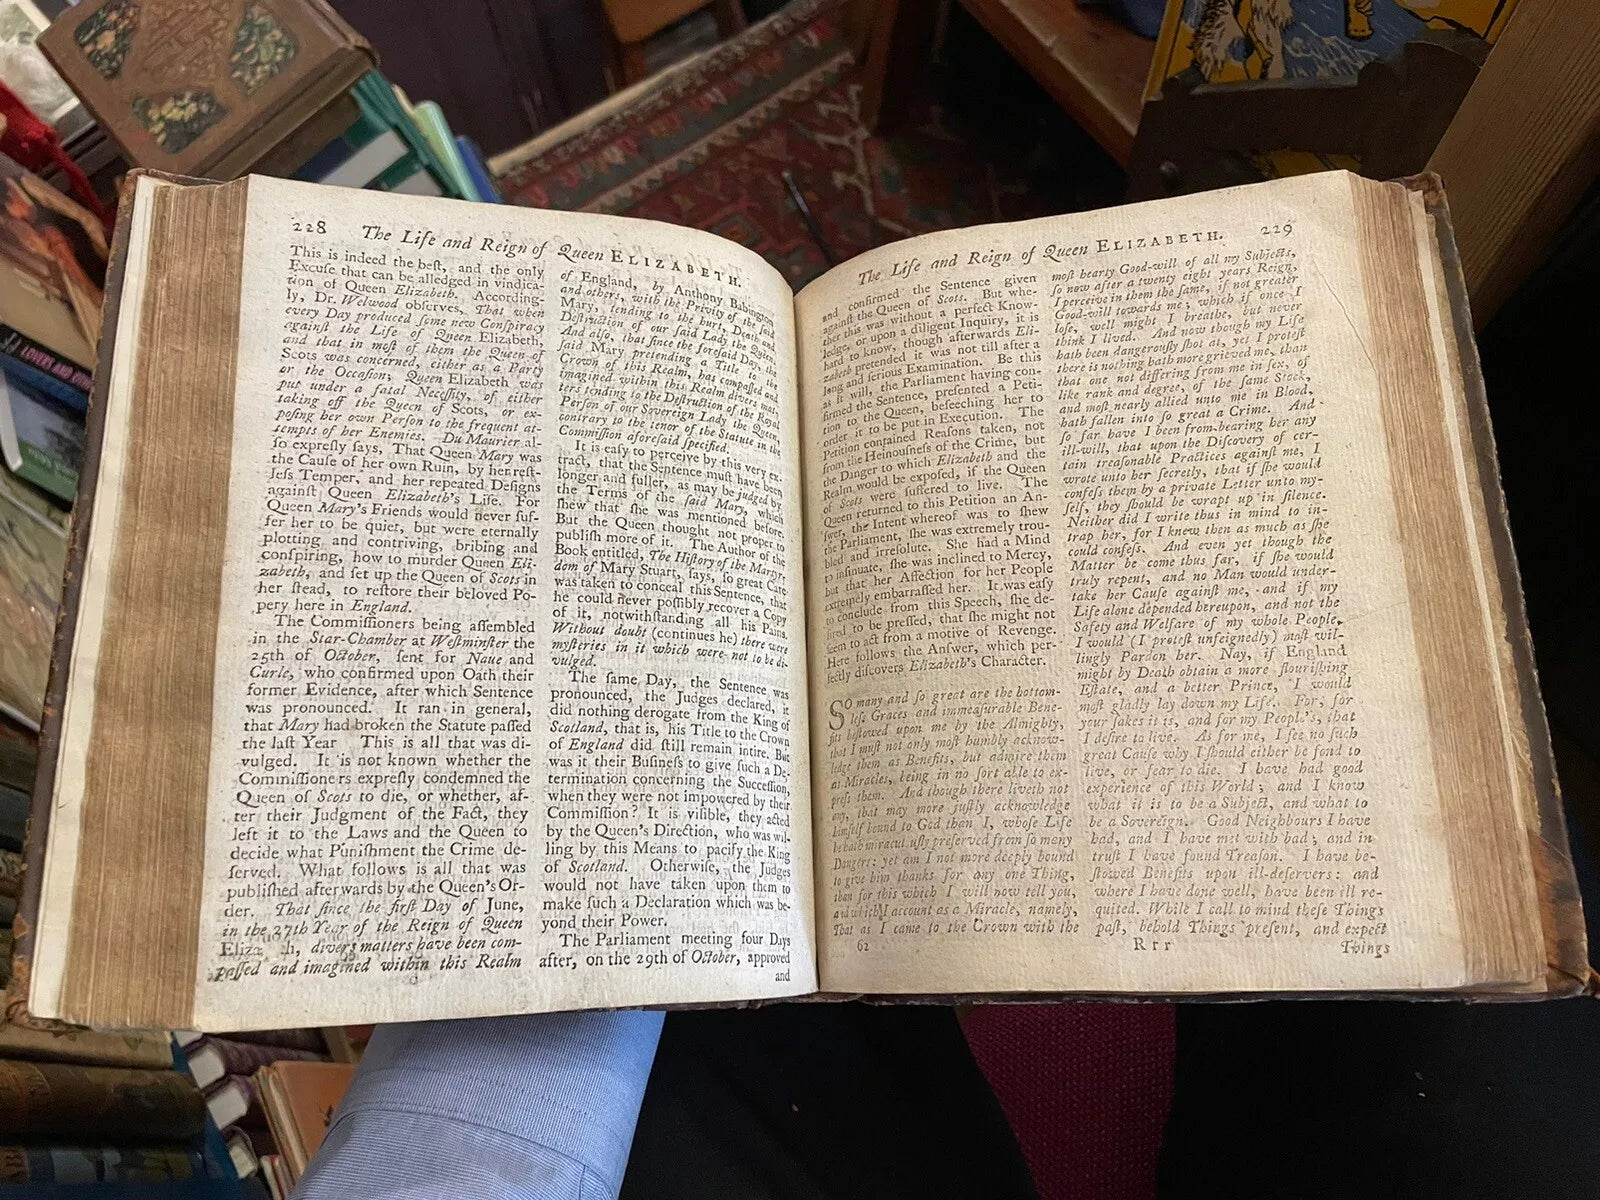 228 The Life and Reign of Queen ELIZABETH.
This is indeed the beſt, and the only
Excuſe that can be alledged in vindica-
tion of Queen Elizabeth. According-
ly, Dr. Welwood obſerves, That when
every Day produced ſome new Conſpiracy
againſt the Life of Queen Elizabeth,
and that in moſt of them the Queen of
Scots was concerned, either as a Party
or the Occaſion; Queen Elizabeth was
put under a fatal Neceſſity, of either
taking off the Queen of Scots, or ex-
poſing her own Perſon to the frequent at-
tempts of her Enemies. Du Maurier al-
ſo expreſly ſays, That Queen Mary was
the Cauſe of her own Ruin, by her reſt-
leſs Temper, and her repeated Deſigns
againſt Queen Elizabeth's Life. For
Queen Mary's Friends would never ſuf-
fer her to be quiet, but were eternally
plotting and contriving, bribing and
conſpiring, how to murder Queen Eli-
zabeth, and ſet up the Queen of Scots in
her ſtead, to reſtore their beloved Po-
pery here in England.
The Commiſſioners being aſſembled
in the Star-Chamber at Weſtminſter the
25th of October, ſent for Naue and
Curle, who confirmed upon Oath their
former Evidence, after which Sentence
was pronounced. It ran in general,
that Mary had broken the Statute paſſed
the laſt Year This is all that was di-
vulged. It is not known whether the
Commiſſioners expreſly condemned the
Queen of Scots to die, or whether, af-
ter their Judgment of the Fact, they
left it to the Laws and the Queen to
decide what Puniſhment the Crime de-
ſerved. What follows is all that was
publiſhed afterwards by the Queen's Or-
der. That ſince the firſt Day of June,
in the 27th Year of the Reign of Queen
divers matters have been com-
paſſed and imagined within this Realm
of England, by Anthony Babington
and others, with the Privity of the ſaid
Mary, tending to the hurt, Death and
Deſtruction of our ſaid Lady the Queen.
And alſo, that ſince the foreſaid Day, the
ſaid Mary pretending a Title to the
Crown of this Realm, has compaſſed and
imagined within this Realm divers mat-
ters tending to the Deſtruction of the Royal
Perſon of our Sovereign Lady the Queen,
contrary to the tenor of the Statute in the
Commiſſion aforeſaid ſpecified.
It is eaſy to perceive by this very ex-
tract, that the Sentence muſt have been
longer and fuller, as may be judged by
the Terms of the ſaid Mary, which
ſhew that ſhe was mentioned before.
But the Queen thought not proper to
publiſh more of it. The Author of the
Book entitled, The Hiſtory of the Martyr-
dom of Mary Stuart, ſays, ſo great Care
was taken to conceal this Sentence, that
he could never poſſibly recover a Copy
of it, notwithſtanding all his Pains.
Without doubt (continues he) there were
myſteries in it which were not to be di-
vulged.
The ſame Day, the Sentence was
pronounced, the Judges declared, it
did nothing derogate from the King of
Scotland, that is, his Title to the Crown
of England did ſtill remain intire. But
was it their Buſineſs to give ſuch a De-
termination concerning the Succeſſion,
when they were not impowered by their
Commiſſion? It is viſible, they acted
by the Queen's Direction, who was wil-
ling by this Means to pacify the King
of Scotland. Otherwiſe, the Judges
would not have taken upon them to
make ſuch a Declaration which was be-
yond their Power.
The Parliament meeting four Days
after, on the 29th of October, approved
and
The Life and Reign of Queen ELIZABETH. 229
and confirmed the Sentence given
againſt the Queen of Scots. But whe-
ther this was without a perfect Know-
ledge, or upon a diligent Inquiry, it is
hard to know, though afterwards Eli-
zabeth pretended it was not till after a
long and ſerious Examination. Be this
as it will, the Parliament having con-
firmed the Sentence, preſented a Peti-
tion to the Queen, beſeeching her to
order it to be put in Execution. The
Petition contained Reaſons taken, not
from the Heinouſneſs of the Crime, but
the Danger to which Elizabeth and the
Realm would be expoſed, if the Queen
of Scots were ſuffered to live. The
Queen returned to this Petition an An-
ſwer, the Intent whereof was to ſhew
the Parliament, ſhe was extremely trou-
bled and irreſolute. She had a Mind
to inſinuate, ſhe was inclined to Mercy,
but that her Affection for her People
extremely embarraſſed her. It was eaſy
to conclude from this Speech, ſhe de-
ſired to be preſſed, that ſhe might not
ſeem to act from a motive of Revenge.
Here follows the Anſwer, which per-
fectly diſcovers Elizabeth's Character.
SO many and ſo great are the bottom-
leſs Graces and immeaſurable Bene-
fits beſtowed upon me by the Almighty,
that I muſt not only moſt humbly acknow-
ledge them as Benefits, but admire them
as Miracles, being in no ſort able to ex-
preſs them. And though there liveth not
any, that may more juſtly acknowledge
himſelf bound to God than I, whoſe Life
he hath miraculuſly preſerved from ſo many
Dangers: yet am I not more deeply bound
to give him thanks for any one Thing,
than for this which I will now tell you,
and which I account as a Miracle, namely,
That as I came to the Crown with the
62 Rrr
moſt hearty Good-will of all my Subjects,
ſo now after a twenty eight years Reign,
I perceive in them the ſame, if not greater
Good-will towards me; which if once I
loſe, well might I breathe, but never
think I lived. And now though my Life
hath been dangerouſly ſhot at, yet I proteſt
there is nothing hath more grieved me, than
that one not differing from me in ſex, of
like rank and degree, of the ſame Stock,
and moſt nearly allied unto me in Blood,
hath fallen into ſo great a Crime. And
ſo far have I been from bearing her any
ill-will, that upon the Diſcovery of cer-
tain treaſonable Practices againſt me, I
wrote unto her ſecretly, that if ſhe would
confeſs them by a private Letter unto my-
ſelf, they ſhould be wrapt up in ſilence.
Neither did I write thus in mind to in-
trap her, for I knew then as much as ſhe
could confeſs. And even yet though the
Matter be come thus far, if ſhe would
truly repent, and no Man would under-
take her Cauſe againſt me, and if my
Life alone depended hereupon, and not the
Safety and Welfare of my whole People,
I would (I proteſt unfeignedly) moſt wil-
lingly Pardon her. Nay, if England
might by Death obtain a more flouriſhing
Eſtate, and a better Prince, I would
moſt gladly lay down my Life. For, for
your ſakes it is, and for my People's, that
I deſire to live. As for me, I ſee no ſuch
great Cauſe why I ſhould either be fond to
live, or fear to die. I have had good
experience of this World; and I know
what it is to be a Subject, and what to
be a Sovereign. Good Neighbours I have
had, and I have met with bad; and in
truſt I have found Treaſon. I have be-
ſtowed Benefits upon ill-deſervers: and
where I have done well, have been ill re-
quited. While I call to mind theſe Things
paſt, behold Things preſent, and expect
Things
LOVERS AND